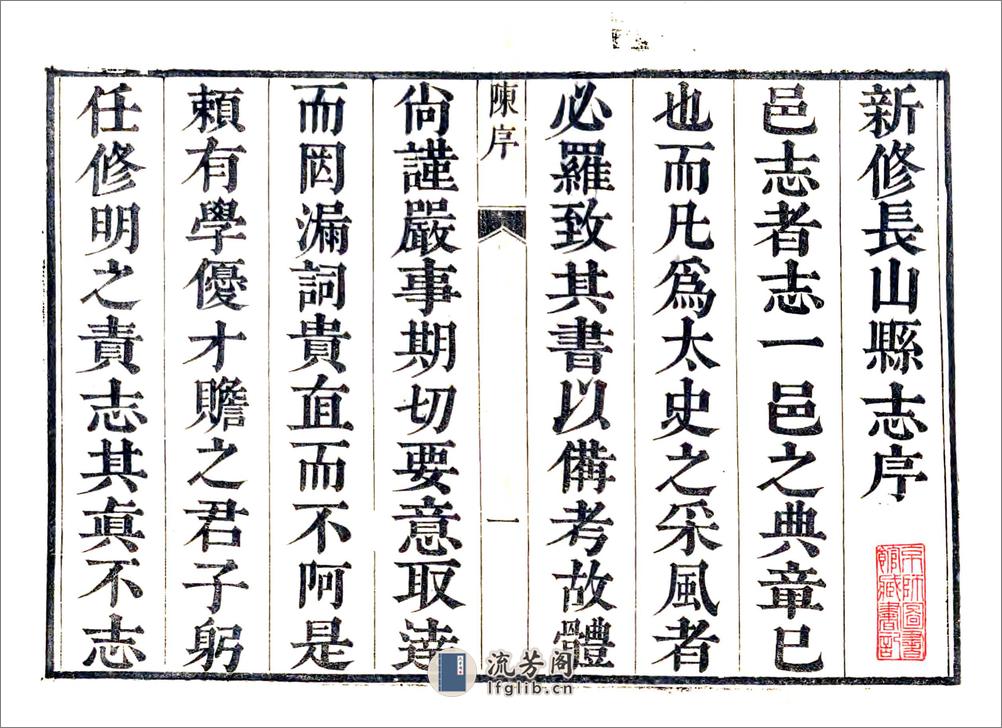 新修長山縣志序
邑志者志一邑之典章已
也而凡爲太史之采風者
必羅致其書以備考故體
陳序
一
尙謹嚴事期切要意取逹
而罔漏詞貴直而不阿是
頼有學優才贍之君子躬
任修明之責志其眞不志
京師圖書
館藏書記
流芳阁
lfglib.cn